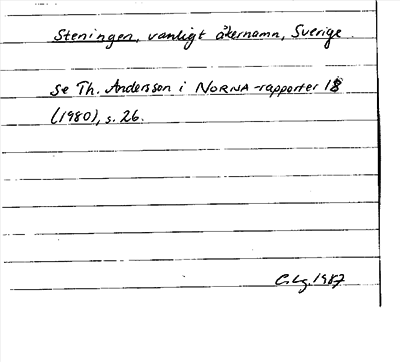 Steningen, vanligt åkernamn, Sverige.
Se Th. Andersson i NORNA-rapporter 18
(1980), s. 26.
C.Lg. 1987